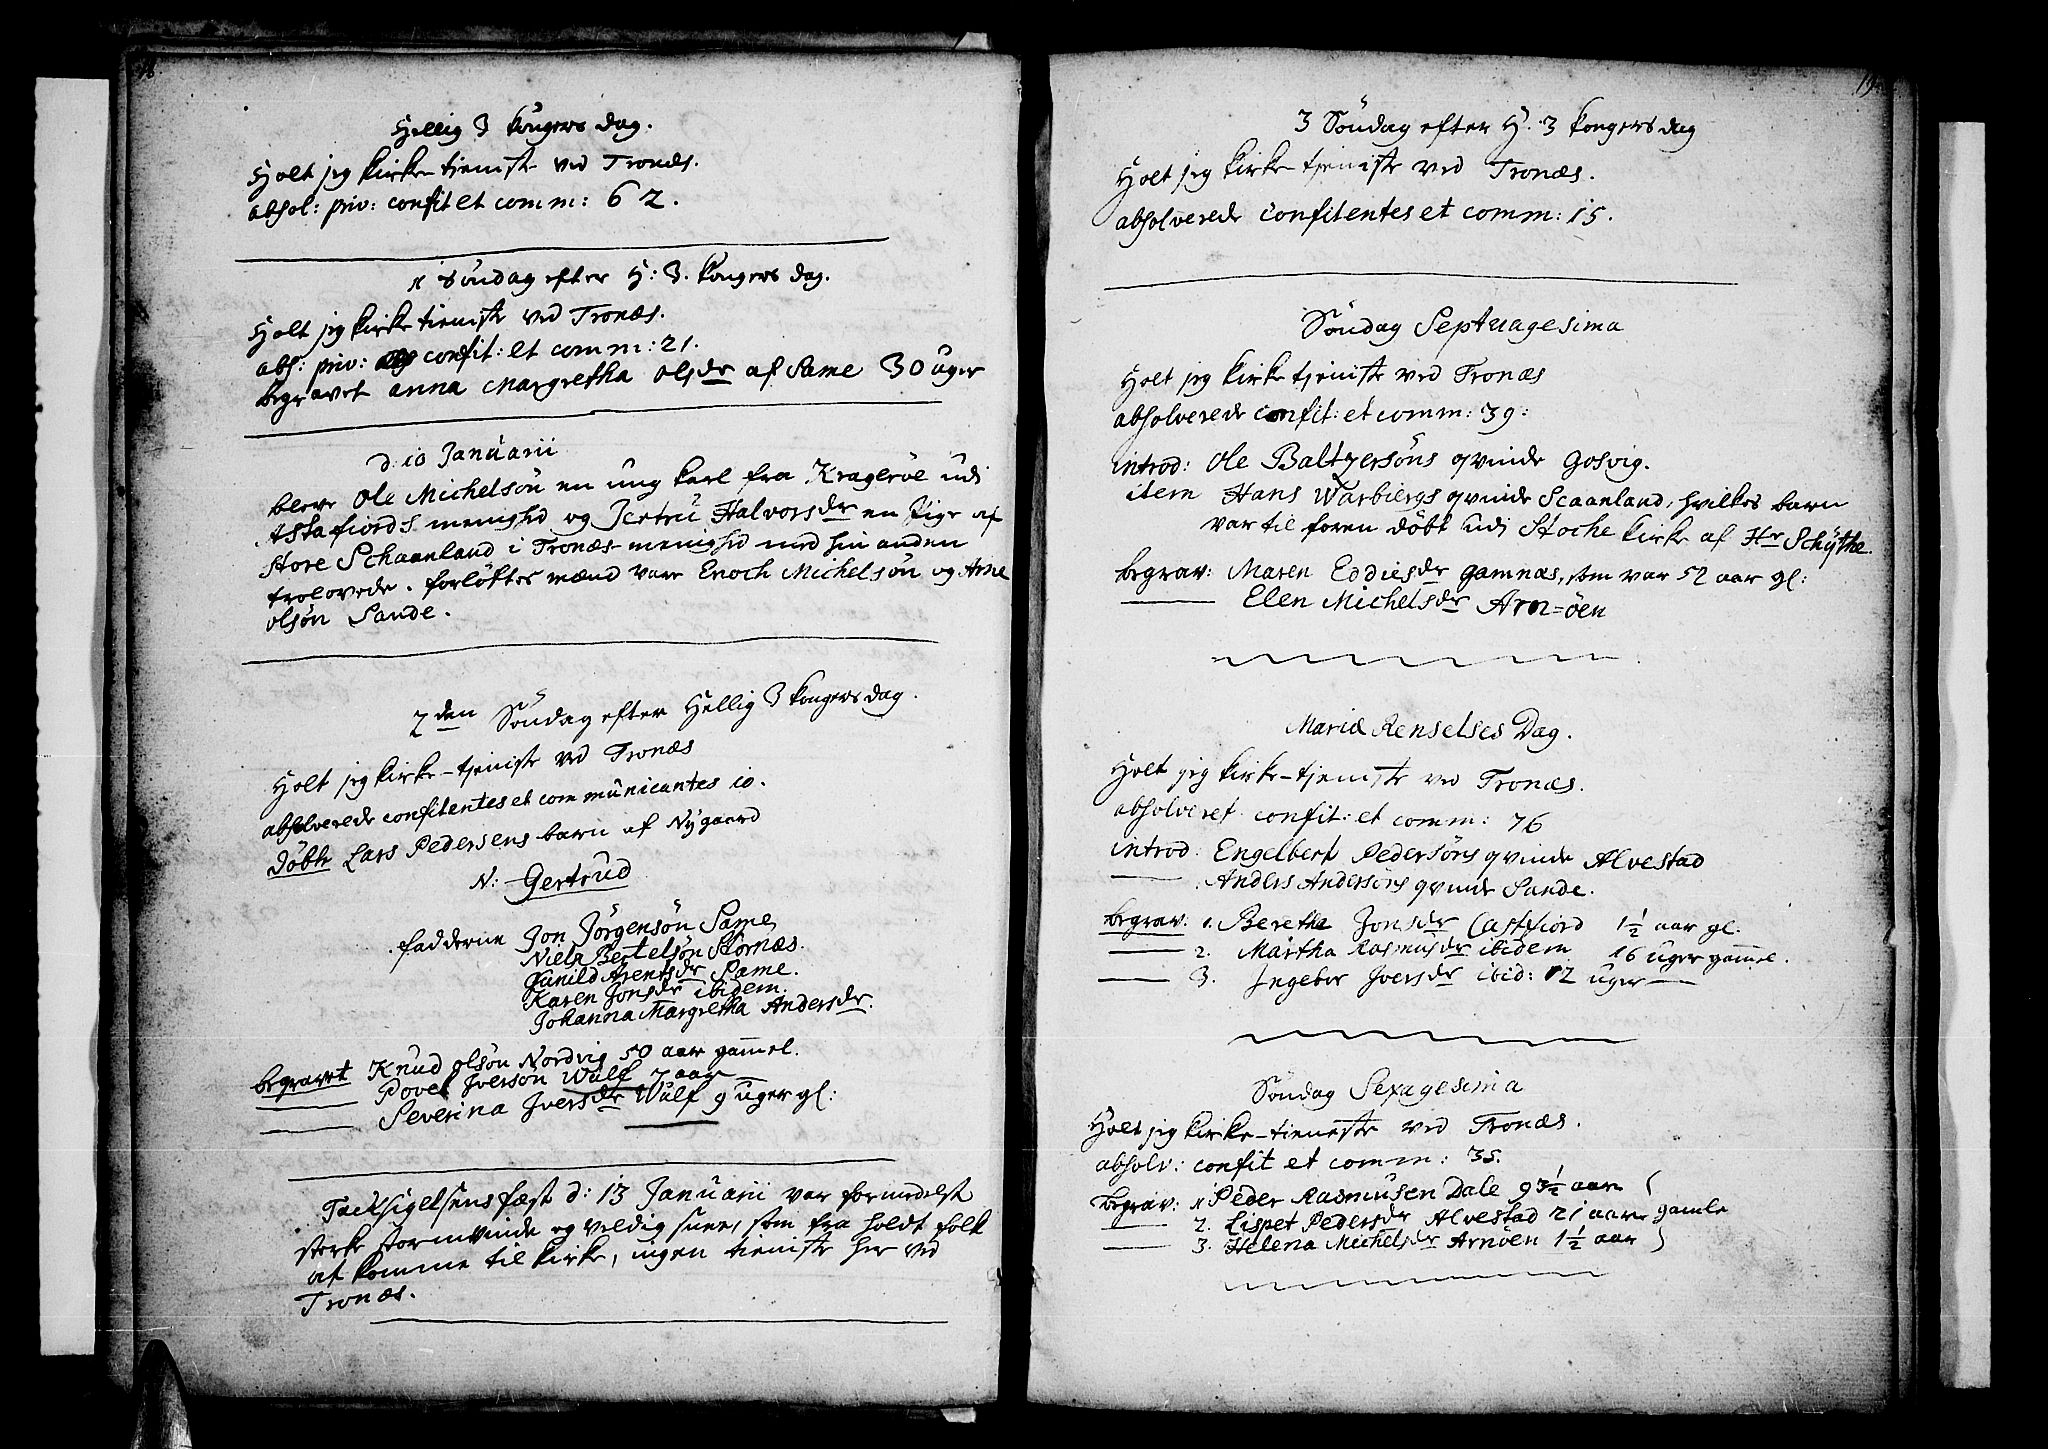 18.
Hellig 3 kongers dag.
Holt jeg kirke tieniste ved Tronæs.
absol: priv: confitet comm: 62.
1 Söndag efter H: 3. kongers dag.
Holt jeg kirke tieniste ved Tronæs.
abs: priv: confit: et comm: 21.
begravet anna Margretha olsdr af Same 30 uger
d: 10 Januarii
bleve Ole Michelsön en ung karl fra Krageröe udi
Astafiords menighed og Jertru Halvorsdr en Pige af
Store Schaanland i Tronæs menighed med hin anden
trolovede. forlöftes mænd vare Enoch Michelsön og Arne
olsön Sande.
2den Söndag efter Hellig 3 kongers dag.
Holt jeg kirke-tjeniste ved Tronæs
absolverede confitentes et communicantes 10.
döbte Lars Pedersens barn af Nygaard
N: Gertrud
fadderne Jon Jörgensön Same
Niels Bertelsön Stornæs.
Gunild Arentsdr Same.
Karen Jonsdr ibidem.
Johanna Margretha Andersdr.
begravet Knud olsön Nordvig 50 aar gammel.
Povel Iversön Wulf 7 aar
Severina Iversdr Wulf 9 uger gl:
Tacksigelsens fæst d: 13 Januarii var formedelst
sterke stormvinde og veldig snee, som fra holdt folk
at komme til kirke, ingen tieniste her ved
Tronæs.
19.
3 Söndag efter H. 3 kongers dag
Holt jeg kirke tjeniste ved Tronæs.
absolverede confitentes et comm: 15.
Söndag Septuagesima
Holt jeg kirke tjeniste ved Tronæs
absolverede confit: et comm: 39:
introd: Ole Baltzersöns qvinde Gosvig.
item Hans Warbiergs qvinde Scaanland, hvilkes barn
var til foren döbt udi Stoche kirke af Hr Schÿthe.
begrav: Maren Eddiesdr Gamnæs, som var 52 aar gl:
Elen Michelsdr Arn=öen
Mariæ Renselses Dag.
Holt jeg kirke-tjeniste ved Tronæs.
absolveret confit: et comm: 76
introd: Engelbert Pedersöns qvinde Alvestad
Anders Andersöns qvinde Sande.
begrav: 1. Berethe Jonsdr Castfiord 1½ aar gl.
2. Martha Rasmusdr ibidem 16 uger gammel.
3. Ingebor Iversdr ibid: 12 uger
Söndag Sexagesima
Holt jeg kirke-tieneste ved Tronæs.
absolv: confit et comm: 35.
begrav: 1 Peder Rasmusen Dale 93½ aar
2. Lispet Pedersdr Alvestad 21 aar gamle
3. Helena Michelsdr Arnöen 1½ aar